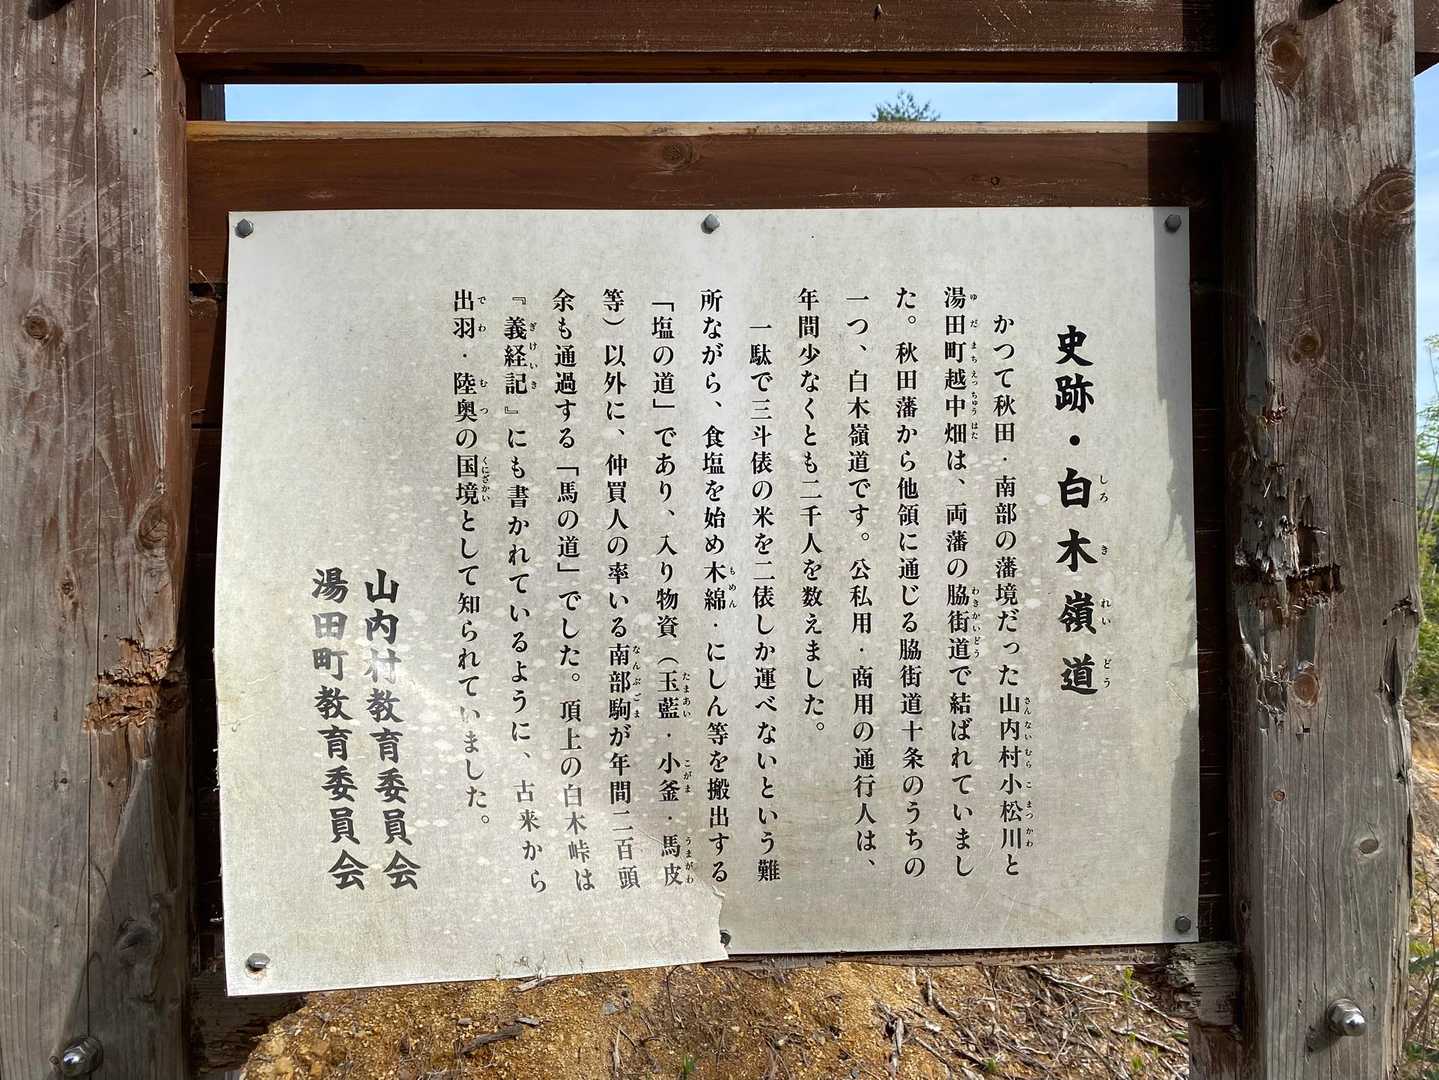 史跡・白木嶺道
かつて秋田・南部の藩境だった山内村小松川と
湯田町越中畑は、両藩の脇街道で結ばれていまし
た。秋田藩から他領に通じる脇街道十条のうちの
一つ、白木嶺道です。公私用・商用の通行人は、
年間少なくとも二千人を数えました。
一駄で三斗俵の米を二俵しか運べないという難
所ながら、食塩を始め木綿・にしん等を搬出する
「塩の道」であり、入り物資（玉藍・小釜・馬皮
等）以外に、仲買人の率いる南部駒が年間二百頭
余も通過する「馬の道」でした。頂上の白木峠は
『義経記』にも書かれているように、古来から
出羽・陸奥の国境として知られていました。
山内村教育委員会
湯田町教育委員会